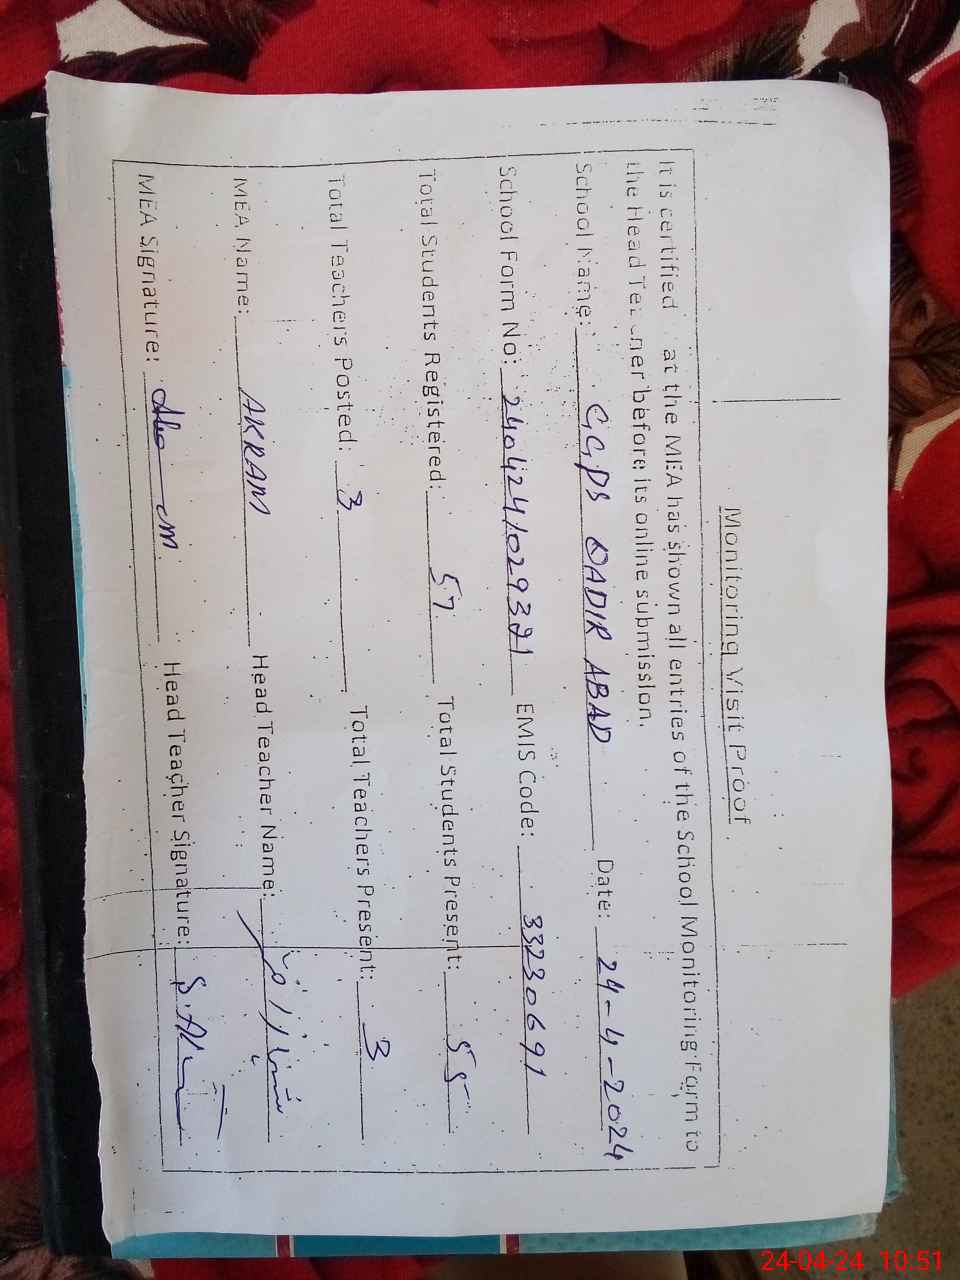 Monitoring Visit Proof
It is certified at the MEA has shown all entries of the School Monitoring Form to
the Head Te ner before its online submission.
School Name: GGPS QADIR ABAD Date: 24-4-2024
School Form No: 240424/0293 1 EMIS Code: 33230691
Total Students Registered: 57 Total Students Present: 55
Total Teachers Posted: 3 Total Teachers Present: 3
MEA Name: AKRAM Head Teacher Name:
MEA Signature: Head Teacher Signature:
24-04-24 10:51